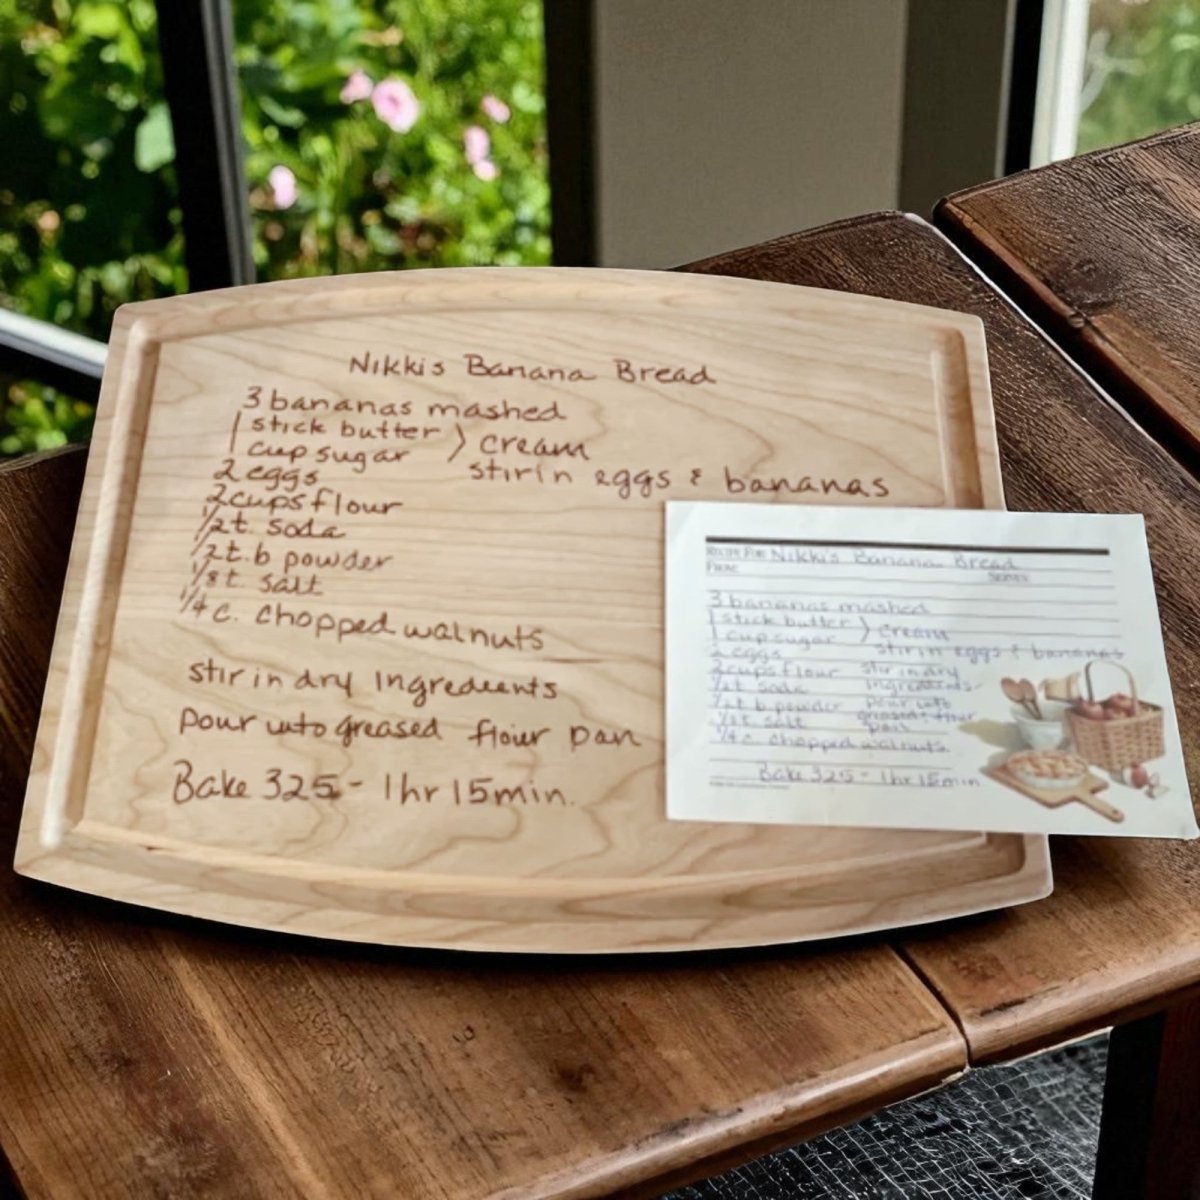 Nikki's Banana Bread
3 bananas mashed
1 stick butter } cream
1 cup sugar
2 eggs stir in eggs & bananas
2 cups flour
1/2 t. soda
1/2 t. b powder
1/8 t. salt
1/4 c. chopped walnuts
stir in dry Ingredients
pour into greased flour pan
Bake 325 - 1 hr 15 min.
RECIPE FOR Nikki's Banana Bread
FROM SERVES
3 bananas mashed
1 stick butter } cream
1 cup sugar
2 eggs stir in eggs & bananas
2 cups flour stir in dry
1/2 t. soda ingredients-
1/2 t. b powder pour into
1/8 t. salt greased + flour
1/4 c. chopped walnuts pan
Bake 325 - 1 hr 15 min